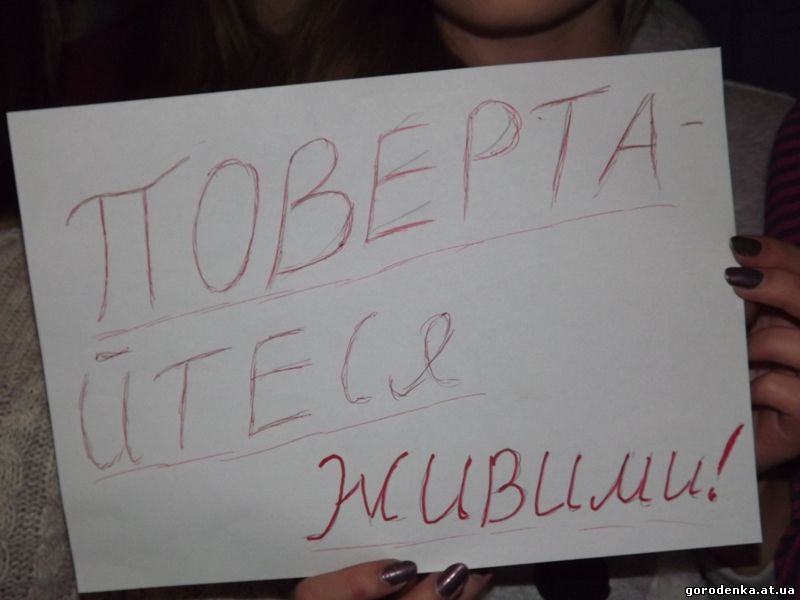 ПОВЕРТА-
ЙТЕСЯ
ЖИВИМИ!
gorodenka.at.ua